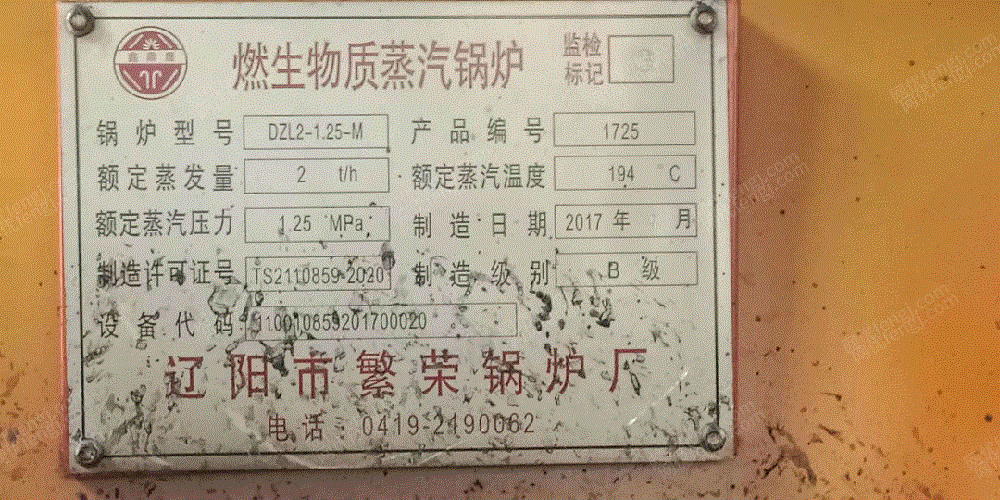 燃生物质蒸汽锅炉 监检标记
锅炉型号 DZL2-1.25-M 产品编号 1725
额定蒸发量 2 t/h 额定蒸汽温度 194 C
额定蒸汽压力 1.25 MPa 制造日期 2017 年 月
制造许可证号 TS2110859-2020 制造级别 B 级
设备代码 110010859201700020
辽阳市繁荣锅炉厂
电话: 0419-2190062